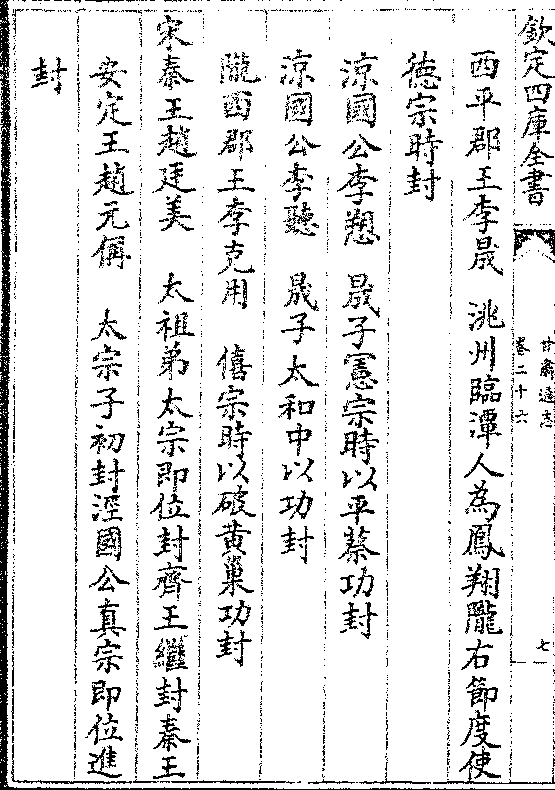 欽定四庫全書
甘肅通志
卷二十六
七
西平郡王李晟　洮州臨潭人為鳳翔隴右節度使
德宗時封
涼國公李愬　晟子憲宗時以平蔡功封
涼國公李聽　晟子太和中以功封
隴西郡王李克用　僖宗時以破黄巢功封
宋秦王趙廷美　太祖弟太宗即位封齊王繼封秦王
安定王趙元偁　太宗子初封涇國公真宗即位進
封